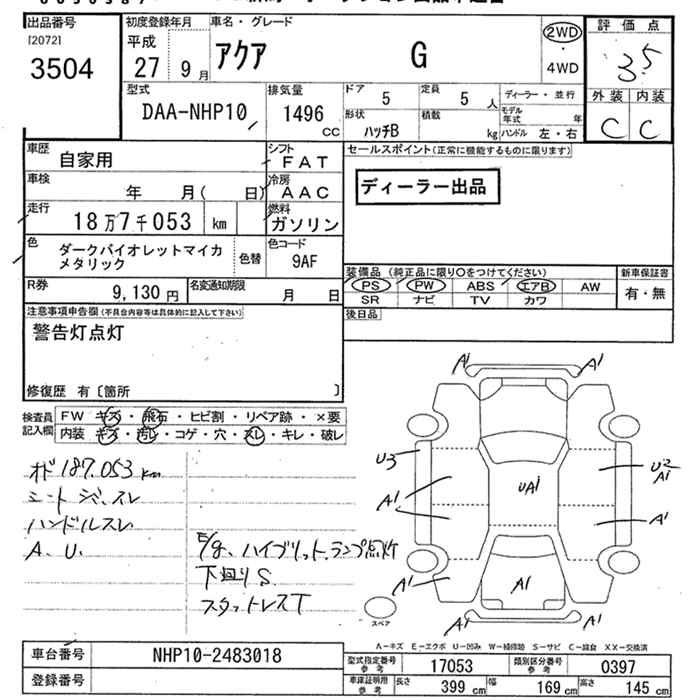 出品番号
[2072]
3504
初度登録年月
平成
27 9月
車名・グレード
アクア G
2WD
・
4WD
評価点
3.5
外装 内装
C C
型式
DAA-NHP10
排気量
1496
CC
ドア
5
定員
5 人
ディーラー・並行
形状
ハッチB
積載
kg
モデル年式 年
ハンドル 左・右
車歴
自家用
シフト
FAT
車検
年 月( 日)
冷房
AAC
走行
18万7千053 km
燃料
ガソリン
色
ダークバイオレットマイカ
メタリック
色替
色コード
9AF
R券
9,130円
名変通知期限
月 日
セールスポイント(正常に機能するものに限ります)
ディーラー出品
装備品 (純正品に限り○をつけてください)
PS PW ABS エアB AW
SR ナビ TV カワ
新車保証書
有・無
後日品
注意事項申告欄(不具合内容等は具体的に記入して下さい)
警告灯点灯
修復歴 有〔箇所 〕
検査員
記入欄
FW キズ・飛石・ヒビ割・リペア跡・×要
内装 キズ・汚レ・コゲ・穴・スレ・キレ・破レ
オド187.053km
シートジ、スレ
ハンドルスレ
A. U.
E/g、ハイブリット.ランプ点灯
下廻りS
スタットレスT
A1 A1
U3 U2
A1
UA1
A1 A1
A1 A1
A1 A1
スペア
A－キズ E－エクボ U－凹み W－補修跡 S－サビ C－腐食 XX－交換済
車台番号
NHP10-2483018
登録番号
型式指定番号
参考
17053
類別区分番号
参考
0397
車庫証明用
参考
長さ
399 cm
幅
169 cm
高さ
145 cm